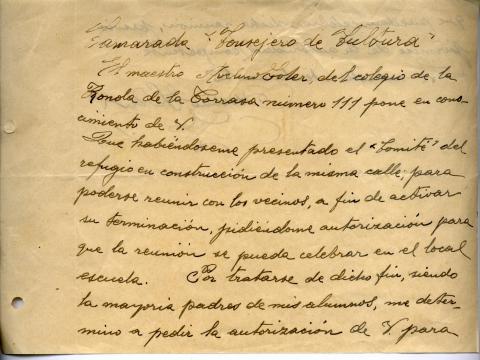 Camarada "Consejero de Cultura"
El maestro Arturo Soler del colegio de la
Ronda de la Torrasa número 111 pone en cono-
cimiento de V.
Que habiéndoseme presentado el "Comité" del
refugio en construcción de la misma calle, para
poderse reunir con los vecinos, a fin de activar
su terminación, pidiéndome autorización para
que la reunión se pueda celebrar en el local
escuela. Por tratarse de dicho fin, siendo
la mayoria padres de mis alumnos, me deter-
mino a pedir la autorización de V. para